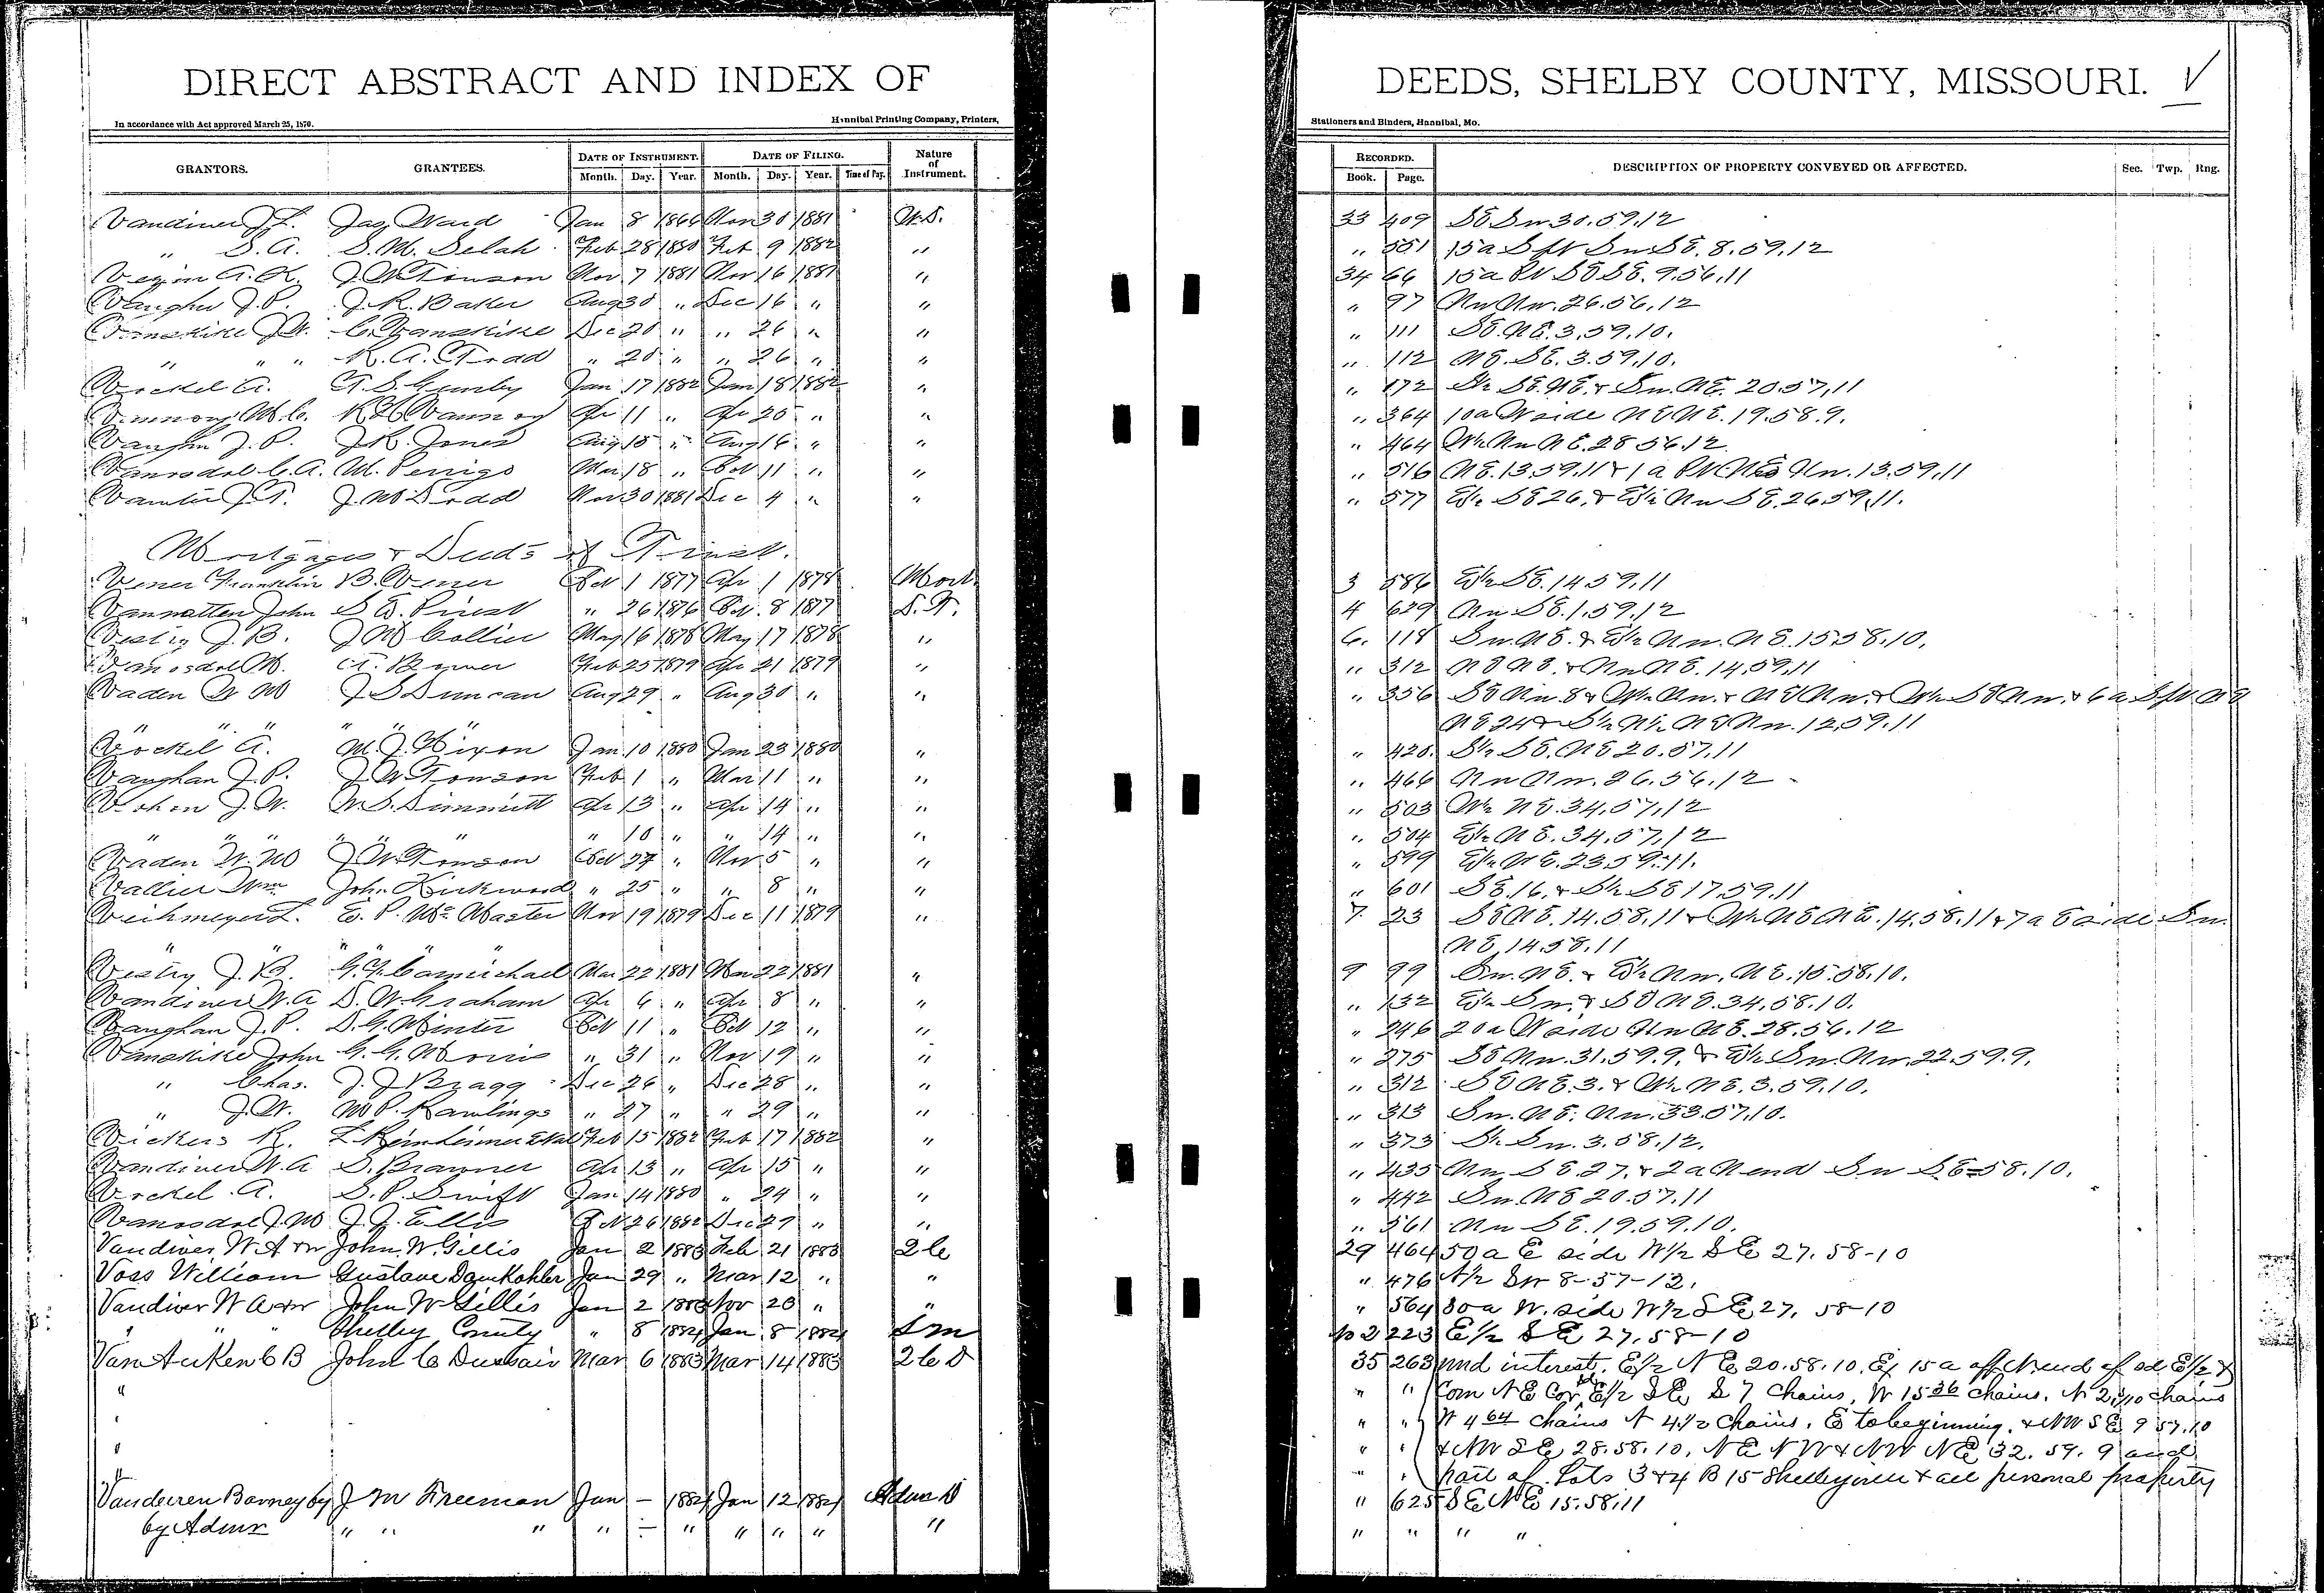 DIRECT ABSTRACT AND INDEX OF DEEDS, SHELBY COUNTY, MISSOURI. √
In accordance with Act approved March 25, 1870. Hannibal Printing Company, Printers, Stationers and Binders, Hannibal, Mo.
GRANTORS. GRANTEES. DATE OF INSTRUMENT. Month. Day. Year. DATE OF FILING. Month. Day. Year. Time of Day. Nature of Instrument. RECORDED. Book. Page. DESCRIPTION OF PROPERTY CONVEYED OR AFFECTED. Sec. Twp. Rng.
Vandiver J.L. Jas Ward Jan 8 1866 Nov 30 1881 W.D. 33 409 SE Sw 30.59.12
" S.A. S.M. Selah Feb 28 1880 Feb 9 1882 " " 551 15a S pt Sw SE. 8.59.12
A.K. J.W. Towson Nov 7 1881 Nov 16 1881 " 34 66 15a Pt SE SE. 9.56.11
Vaughn J.P. J.R. Baker Aug 30 " Dec 16 " " " 97 Nw Nw. 26.56.12
Vanskike J.W. C. Vanskike Dec 20 " " 26 " " " 111 SE. NE. 3.59.10.
" " " R.A. Trad " 20 " " 26 " " " 112 NE. SE. 3.59.10.
Vockel A. Jan 17 1882 Jan 18 1882 " " 172 S½ SE. NE. & Sw. NE. 20.57.11
M.C. Ap 11 " Ap 25 " " " 364 10a W side NE NE. 19.58.9.
Vaughn J.P. J.K. Jones Aug 15 " Aug 16 " " " 464 W½ Nw NE. 28 56.12
Vanosdol C.A. M. Perrigo Mar 18 " Oct 11 " " " 516 NE. 13.59.11 & 1a Pt Nw. 13.59.11
J.T. Nov 30 1881 Dec 4 " " " 577 E½ SE 26. & E½ Nw SE. 26 59.11.
Mortgages & Deeds of Trust.
Vener Franklin B. Vener Oct 1 1877 Apr 1 1878 Mort 3 586 E½ SE. 14 59.11
Vannatten John S.E. Priest " 26 1876 Oct. 8 1877 D.T. 4 629 Nw SE. 1.59.12
Vestry J.B. J.M. Collier May 16 1878 May 17 1878 " 6. 118 Sw. NE. & E½ Nw. NE. 15 58.10.
Vanosdol M. A. Bower Feb 25 1879 Ap 21 1879 " " 312 NE NE. & Nw NE. 14.59.11
Vaden W M J S Duncan Aug 29 " Aug 30 " " " 356 SE Nw. 8 & W½ Nw. & NE Nw. & W½ SE Nw. & 6a S pt NE
" " " " " " NE 24 & S½ N½ NE Nw. 12.59.11
Vockel A. M.J. Hixon Jan. 10 1880 Jan 23 1880 " " 420. S½ SE. NE 20.57.11
Vaughan J.P. J.W. Towson Feb 1 " Mar 11 " " " 466 Nw Nw. 26.56.12
J.W. Dimmitt Ap 13 " Ap 14 " " " 503 W½ NE. 34.57.12
" " " " " " 10 " " 14 " " " 504 E½ NE. 34.57.12
Vaden W.M J.W. Towson Oct 27 " Nov 5 " " " 599 E½ NE. 23.59.11.
Vallier Wm John Kirkwood " 25 " " 8 " " " 601 SE. 16. & S½ SE 17.59.11
Veihmeyer L. E.P. McMaster Nov 19 1879 Dec 11 1879 " 7. 23 SE NE. 14.58.11 & W½ NE NE. 14.58.11 & 7a E side Sw.
" " " " " NE. 14.58.11
Vestry J.B. G.Y. Carmichael Mar 22 1881 Mar 22 1881 " 9 99 Sw. NE. & E½ Nw. NE. 15.58.10.
Vandiver W.A D.W. Graham Ap 6 " Ap 8 " " " 132 E½ Sw. & SE NE. 34.58.10.
Vaughan J.P. D.G. Minter Oct 11 " Oct 12 " " " 246 20a W side Nw NE. 28.56.12
Vanskike John G.G. Morris " 31 " Nov 19 " " " 275 SE Nw. 31.59.9. & E½ Sw. Nw. 22.59.9.
" Chas. J.J. Bragg Dec 26 " Dec 28 " " " 312 SE NE. 3. & W½ NE. 3.59.10.
" J.W. M.P. Rawlings " 27 " " 29 " " " 313 Sw. NE. Nw. 33.57.10.
Vickers R. L. Heimer et al Feb 15 1882 Feb 17 1882 " " 373 S½ Sw. 3.58.12.
Vandiver W.A S. Branner Ap 13 " Ap 15 " " " 435 Nw SE. 27. & 2a N end Sw SE 58.10.
Vockel A. S.P. Swift Jan 14 1880 " 24 " " " 442 Sw. NE 20.57.11
Vanosdol J.M J.J. Ellis Oct 26 1882 Dec 29 " " " 561 Nw SE. 19.59.10.
Vandiver W.A & w John. W. Gillis Jan 2 1883 Feb 21 1883 2 C 29 464 50 a E side W/2 SE 27. 58-10
Voss William Gustave Damkohler Jan 29 " Mar 12 " " " 476 N/2 SW 8-57-12.
Vandiver W A & w John W Gillis Jan 2 1883 Nov 20 " " " 564 30a W. side W/2 SE 27. 58-10
" " " Shelby County " 8 1884 Jan 8 1884 S m No 2 223 E/2 SE 27, 58-10
Van Auken C B John C Dussair Mar 6 1883 Mar 14 1883 2 C D 35 263 und interest. E/2 NE 20.58.10. Ex 15 a off N end of sd E/2 &
" " " Com NE Cor E/2 SE S 7 Chains, W 15 36 chains, N 2 chains
" " " W 4 64 chains N 4½ chains, E to beginning, & NW SE 9 57.10
" " " & NW SE 28.58.10. NE NW & NW NE 32. 59. 9 and
" " " part of Lots 3 & 4 B 15 Shelbyville & all personal property
Vanderen Barney by J M Freeman Jan – 1884 Jan 12 1884 Adm D " 625 SE NE 15.58.11
by Admr " " " " – " " " " " " " " "